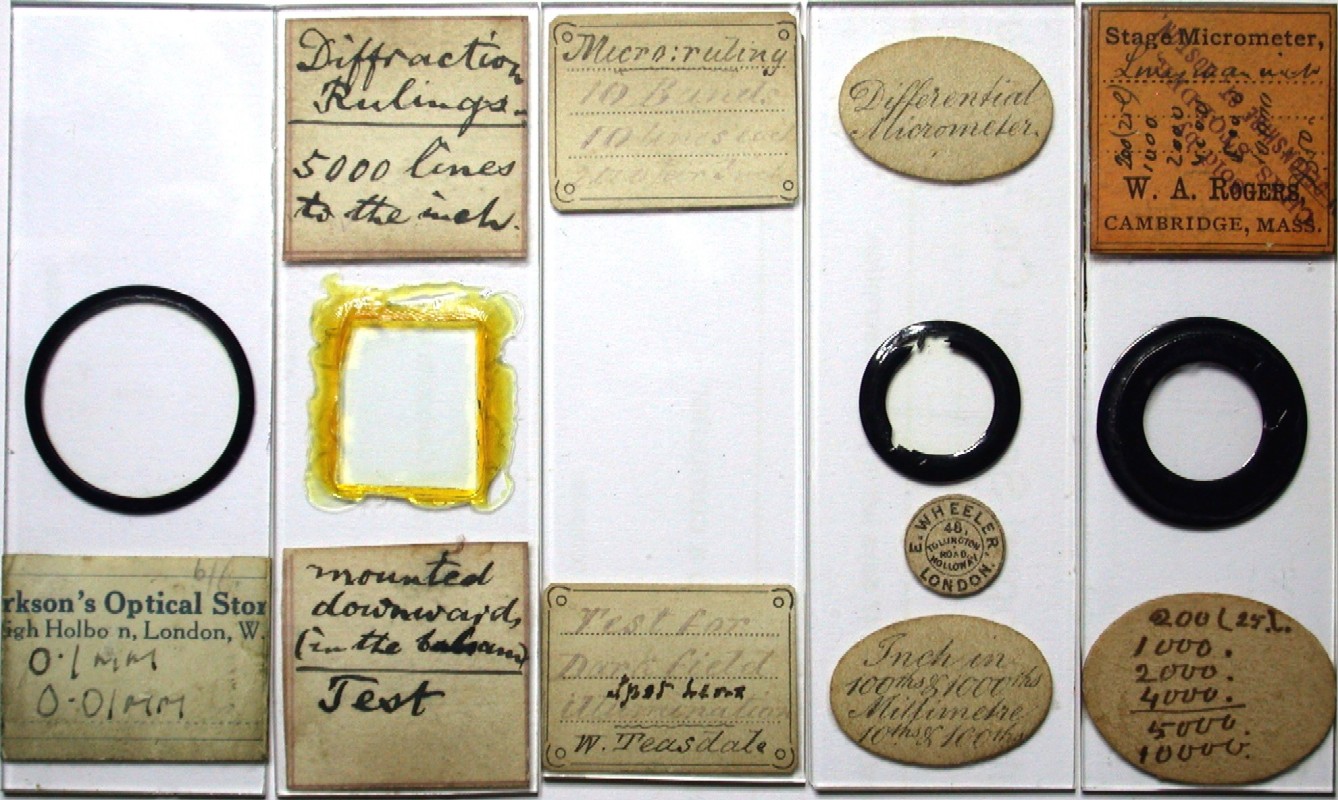 rkson's Optical Stor
igh Holbo n, London, W.
0.1 MM
0.01 MM
Diffraction
Rulings.
5000 lines
to the inch.
mounted
downwards
(in the balsam)
Test
Micro: ruling
10 Bands
10 lines
Test for
Dark field
Spot Lens
illumination
W. Teasdale
Differential
Micrometer.
E. WHEELER,
48,
TOLLINGTON
ROAD,
HOLLOWAY,
LONDON.
Inch in
100ths & 1000ths
Millimetre
10ths & 100ths
Stage Micrometer,
inch
200 (25 l)
1000
2000
W. A. ROGERS,
CAMBRIDGE, MASS.
200 (25 l.
1000.
2000.
4000.
5000.
10000.